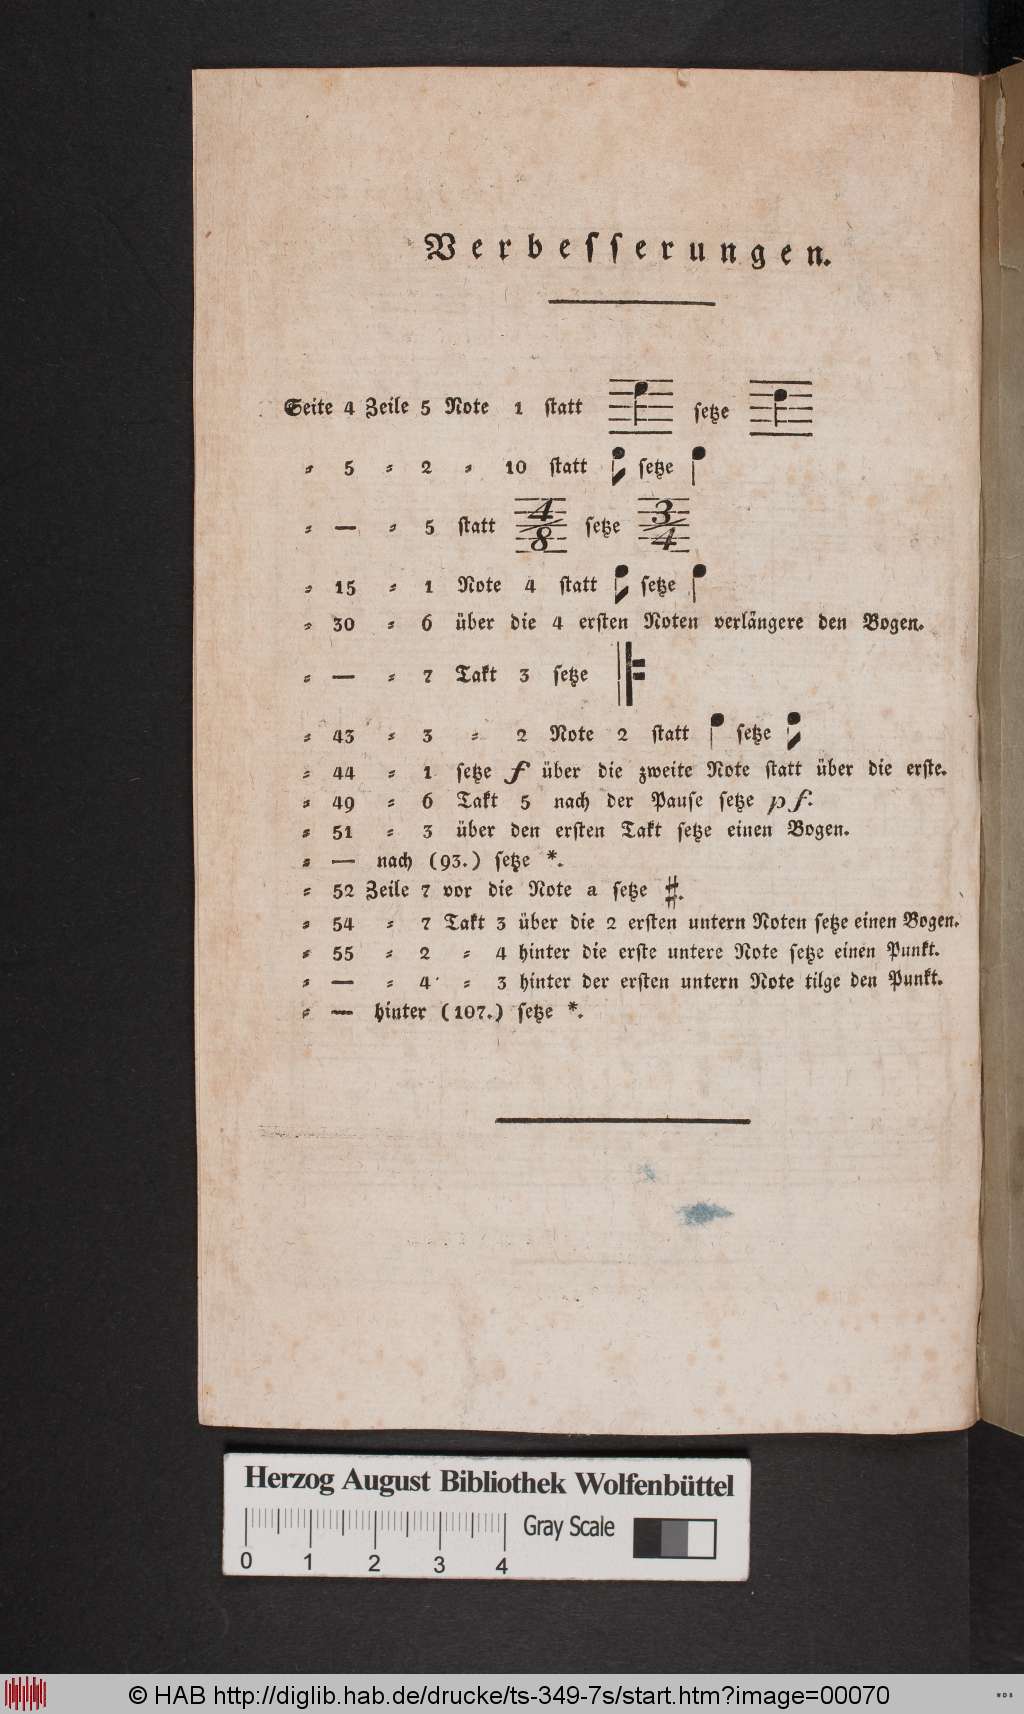 Verbesserungen.
Seite 4 Zeile 5 Note 1 statt setze
= 5 = 2 = 10 statt setze
= — = 5 statt 4/8 setze 3/4
= 15 = 1 Note 4 statt setze
= 30 = 6 über die 4 ersten Noten verlängere den Bogen.
= — = 7 Takt 3 setze
= 43 = 3 = 2 Note 2 statt setze
= 44 = 1 setze f über die zweite Note statt über die erste.
= 49 = 6 Takt 5 nach der Pause setze pf.
= 51 = 3 über den ersten Takt setze einen Bogen.
= — nach (93.) setze *.
= 52 Zeile 7 vor die Note a setze ♯.
= 54 = 7 Takt 3 über die 2 ersten untern Noten setze einen Bogen.
= 55 = 2 = 4 hinter die erste untere Note setze einen Punkt.
= — = 4 = 3 hinter der ersten untern Note tilge den Punkt.
= — hinter (107.) setze *.
Herzog August Bibliothek Wolfenbüttel
Gray Scale
0 1 2 3 4
© HAB http://diglib.hab.de/drucke/ts-349-7s/start.htm?image=00070